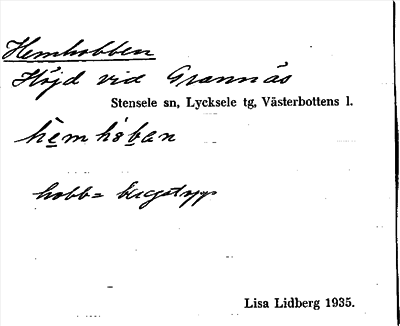 Hemhobben
Höjd vid Grannäs
Stensele sn, Lycksele tg, Västerbottens l.
hèmhòban
hobb = bergstopp
Lisa Lidberg 1935.